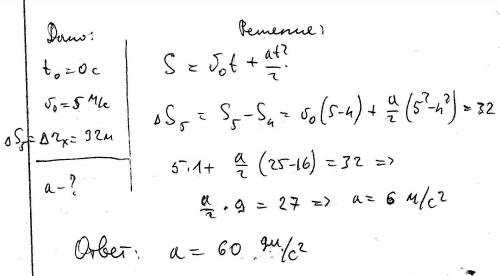 Дано:
t₀ = 0 с
υ₀ = 5 м/с
ΔS₅ = Δr_x = 32 м
a - ?
Решение:
S = υ₀t + at²/2
ΔS₅ = S₅ - S₄ = υ₀(5-4) + a/2 (5² - 4²) = 32
5·1 + a/2 (25-16) = 32 =>
a/2 · 9 = 27 => a = 6 м/с²
Ответ: a = 60 дм/с²